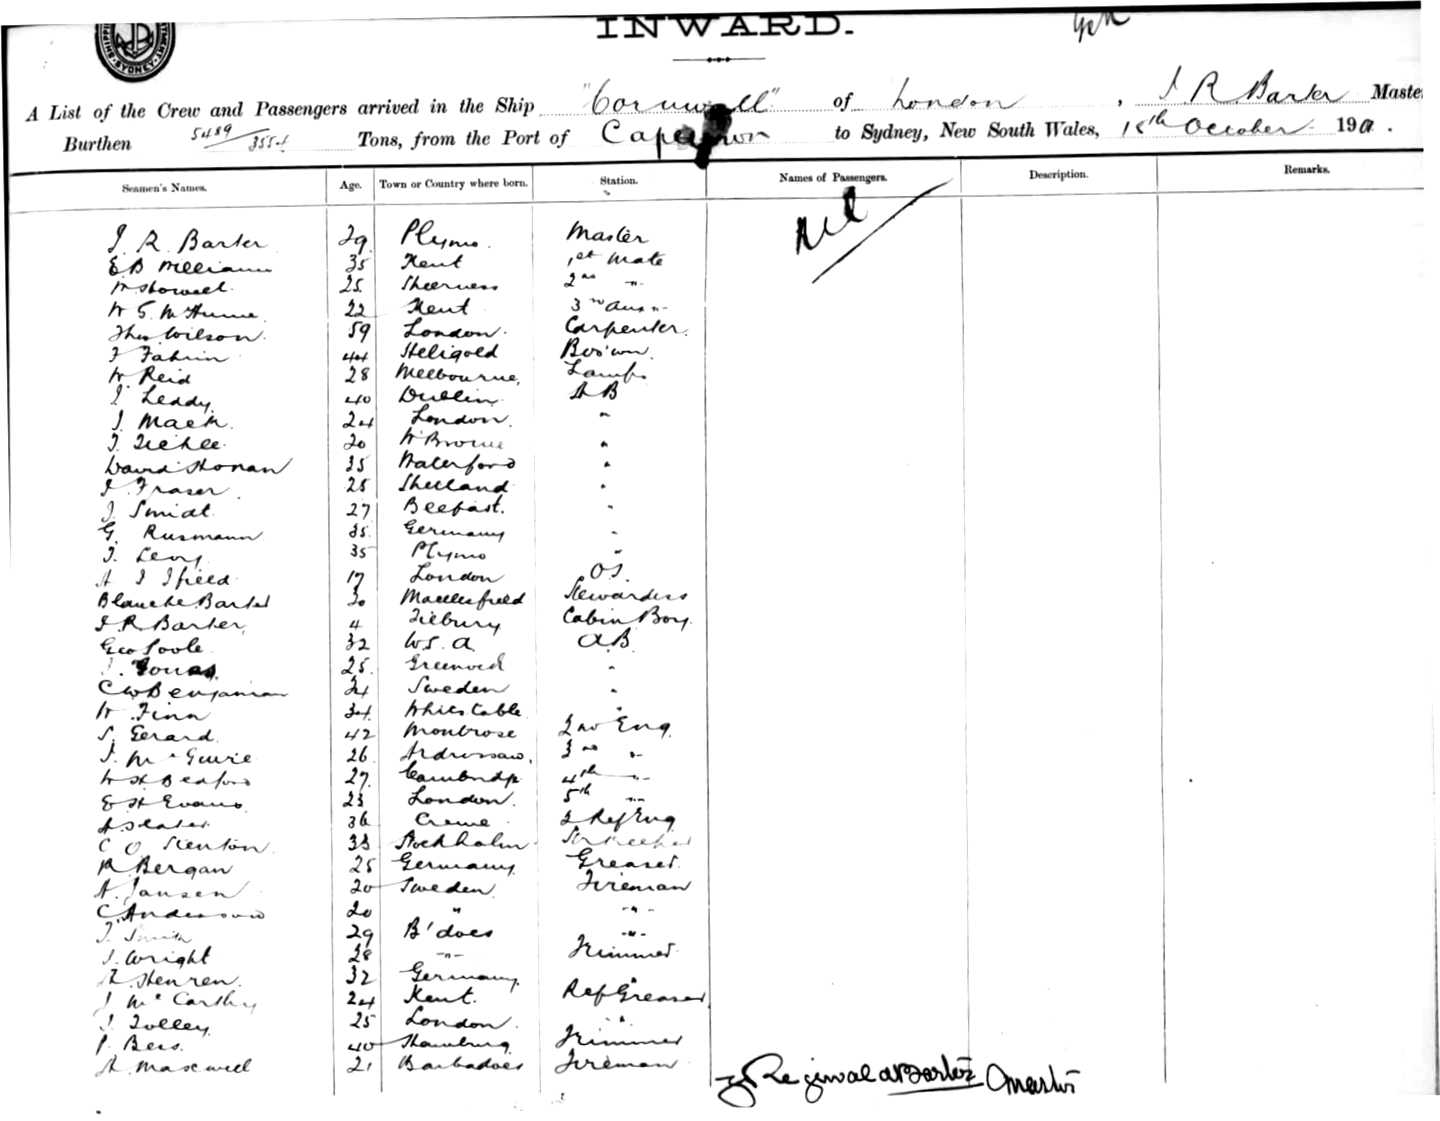 INWARD.
A List of the Crew and Passengers arrived in the Ship "Cornwall" of London, J R Barter Master
Burthen 5489/3554 Tons, from the Port of Capetown to Sydney, New South Wales, 18th October 190
Seamen's Names. Age. Town or Country where born. Station. Names of Passengers. Description. Remarks.
Nil
J. R. Barter 29 Plymo. Master
E B Williams 35 Kent 1st Mate
25 Sheerness 2nd "
22 Kent 3rd
Thos Wilson 59 London. Carpenter.
44 Heligold Bos'wn.
W. Reid 28 Melbourne, Lamps
J. Leddy 40 Dublin A B
J. Mack. 24 London. "
20 "
David Honan 35 Waterford "
J. Fraser 25 Shetland "
J. Smidt 27 Belfast. "
G. Rusmann 35 Germany "
J. Levy 35 Plymo "
A J Ifield 17 London OS.
Blanche Barter 30 Macclesfield Stewardess
J. R Barter, 4 Tilbury Cabin Boy.
Geo Poole 32 U.S. A A.B.
J. Jonas 25 "
C W Benjamin 24 Sweden "
W. Finn 34 Whitstable "
S. Gerard 42 Montrose 2nd Eng
J. McGuire 26 Ardrossan, 3rd "
W H Bedford 27 Cambridge 4th "
E H Evans 23 London. 5th "
A Slater 36 Crewe 2 Ref Eng
C O Stenton 33 Stockholm Strkeeper
R Bergan 25 Germany Greaser
A. Jansen 20 Sweden Fireman
C. Anderson 20 " "
J. Smith 29 B'does "
J. Wright 28 " Trimmer
32 Germany "
J McCarthy 24 Kent. Ref Greaser
J. Tolley 25 London. "
P. Bees. 40 Hamburg Trimmer
A. Maxwell 21 Barbadoes Fireman
J Reginald Barter Master